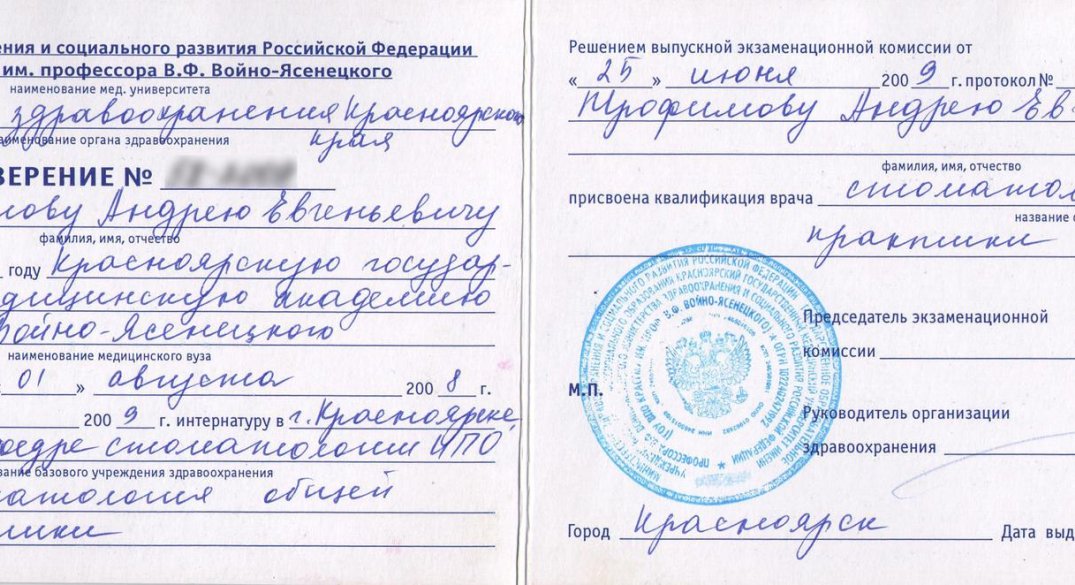 ения и социального развития Российской Федерации
им. профессора В.Ф. Войно-Ясенецкого
наименование мед. университета
здравоохранения Красноярского
наименование органа здравоохранения
края
ВЕРЕНИЕ №
мову Андрею Евгеньевичу
фамилия, имя, отчество
году Красноярскую государ-
дицинскую академию
Войно-Ясенецкого
наименование медицинского вуза
01 » августа 200 8 г.
200 9 г. интернатуру в г. Красноярске,
федре стоматологии ИПО
вание базового учреждения здравоохранения
атология общей
тики
Решением выпускной экзаменационной комиссии от
« 25 » июня 200 9 г. протокол №
Трофимову Андрею Ев
фамилия, имя, отчество
присвоена квалификация врача стоматол
название с
практики
Председатель экзаменационной
комиссии
М.П.
Руководитель организации
здравоохранения
Город Красноярск Дата выд